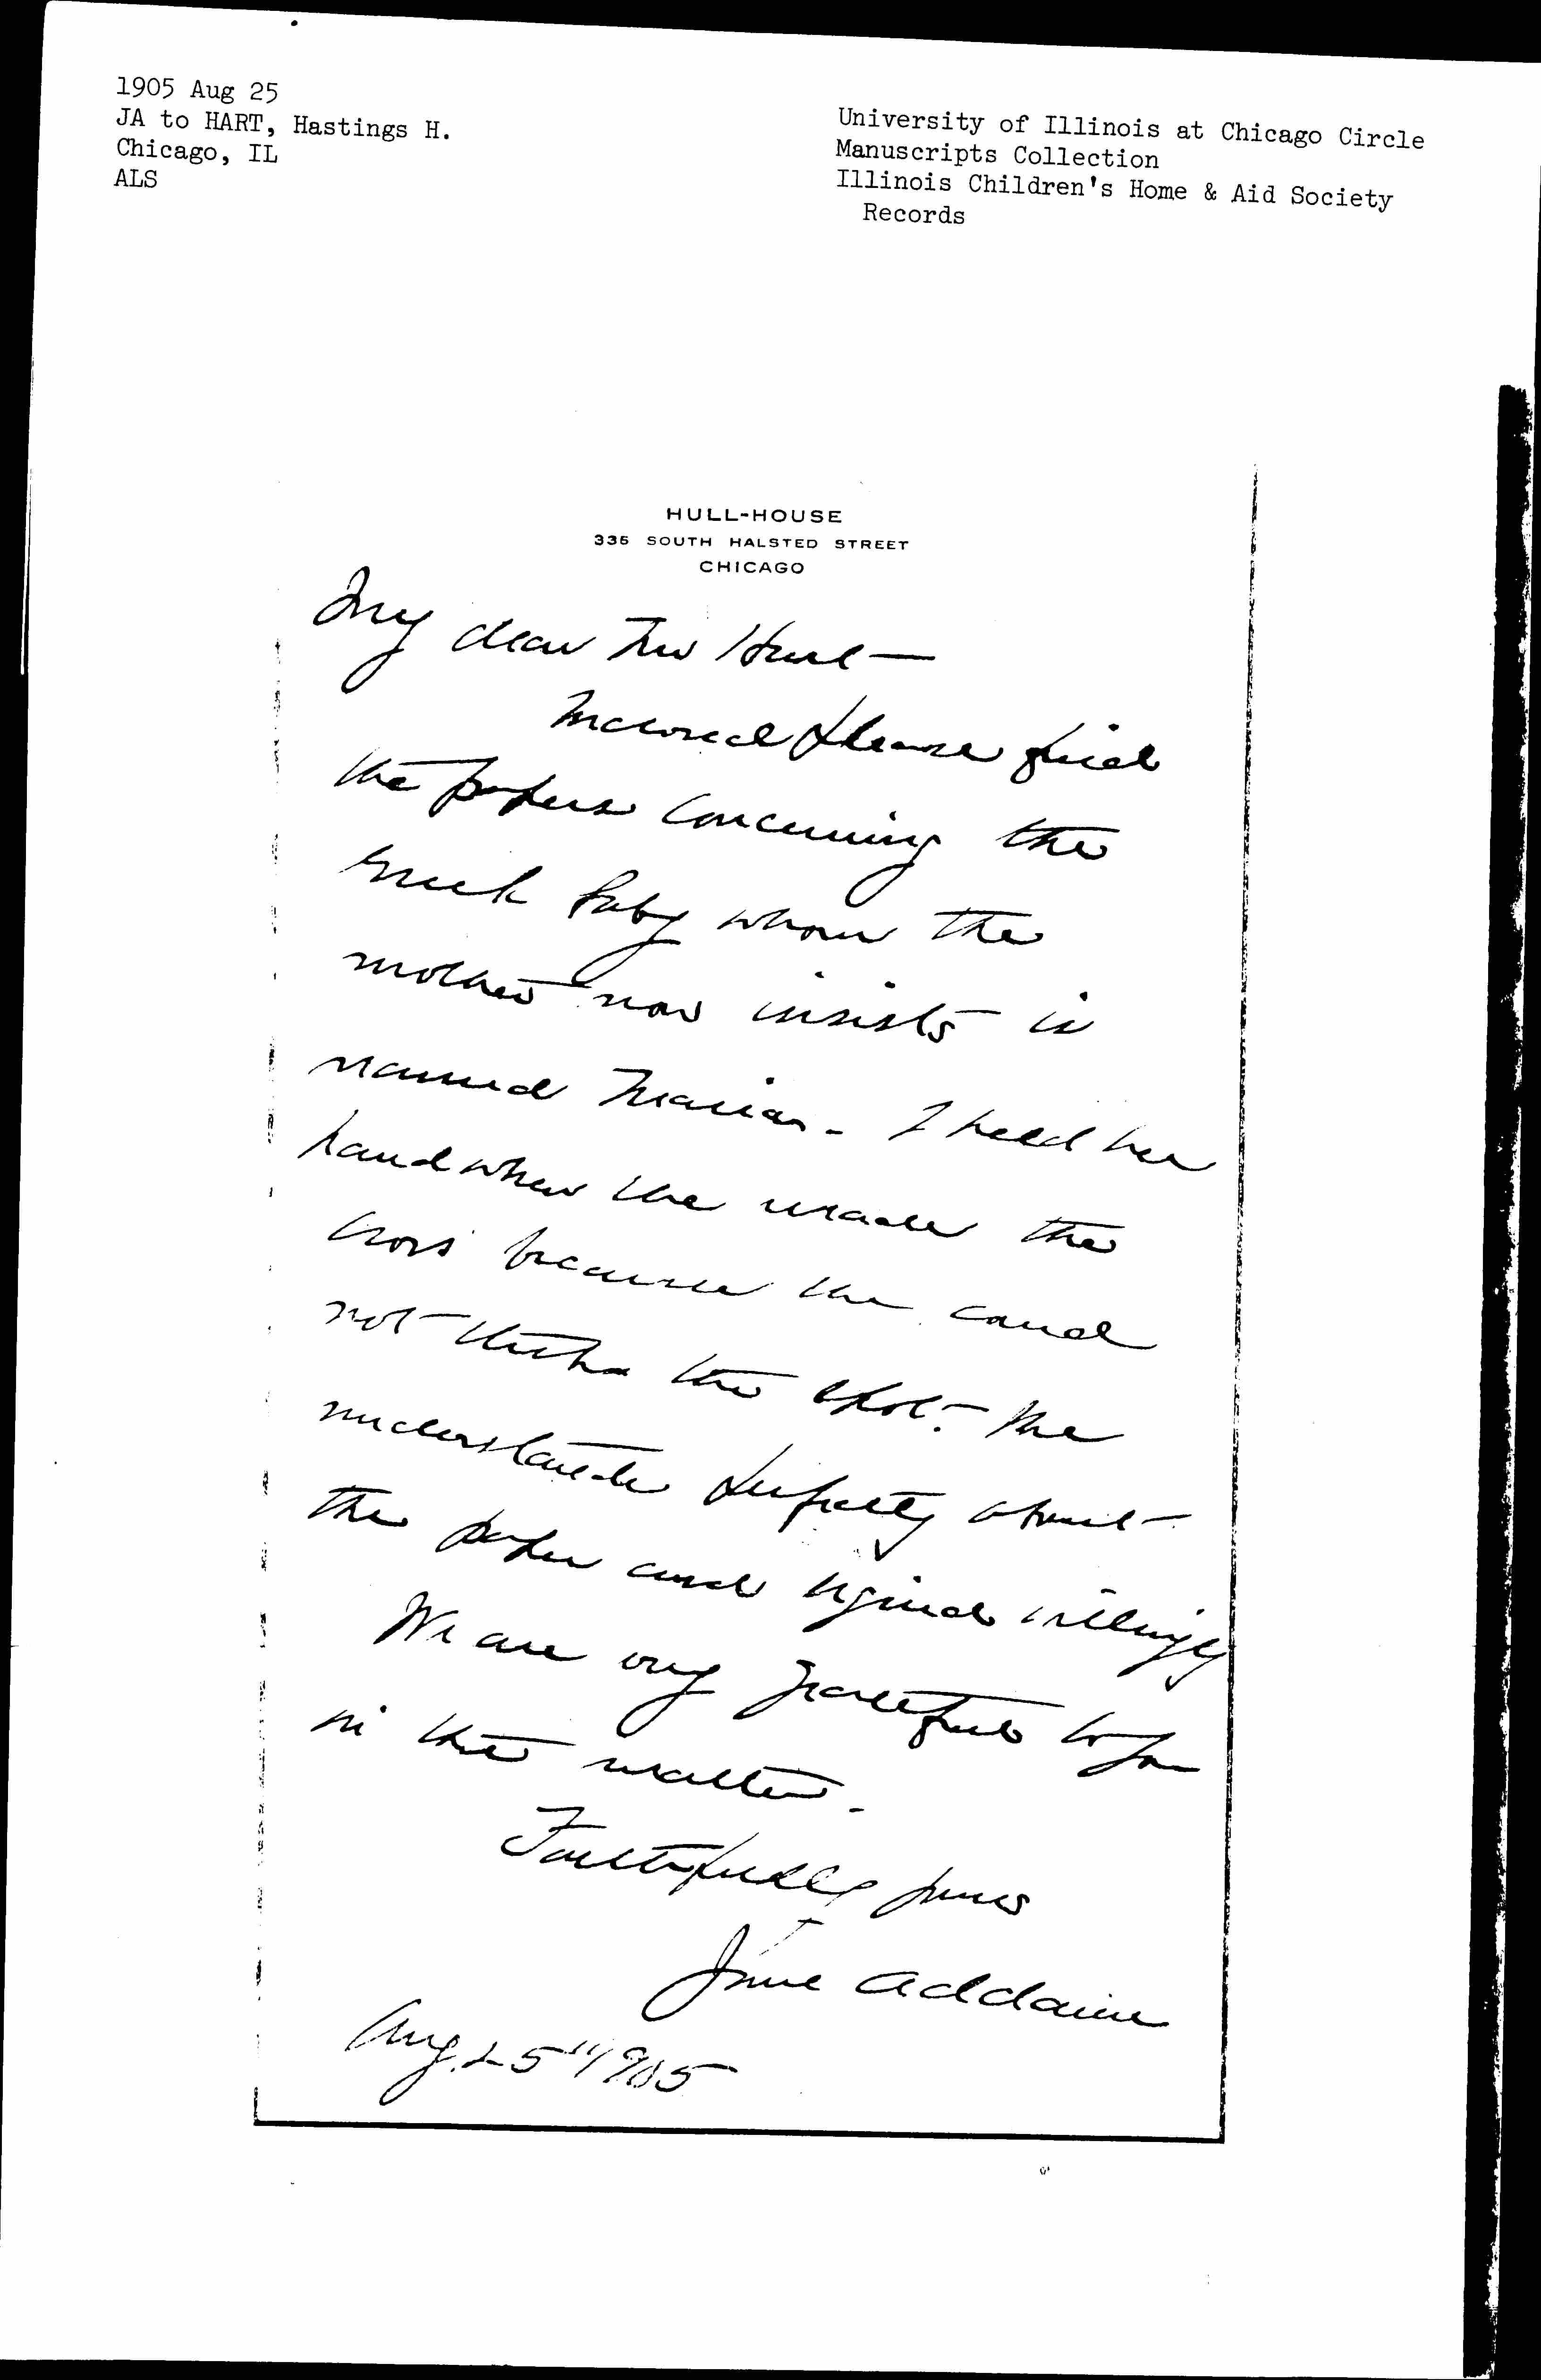 1905 Aug 25
JA to HART, Hastings H.
Chicago, IL
ALS
University of Illinois at Chicago Circle
Manuscripts Collection
Illinois Children's Home & Aid Society
Records
HULL-HOUSE
335 SOUTH HALSTED STREET
CHICAGO
My dear Mr Hart —
Inclosed please find
the papers concerning the
Greek baby whom the
mother now insists is
named Maria. I held her
hand when she made the
cross because she could
not the spot. She
understands perfectly about
the paper and signed willingly
We are very grateful to you
in this matter.
Faithfully yours
Jane Addams
Aug. 25" 1905